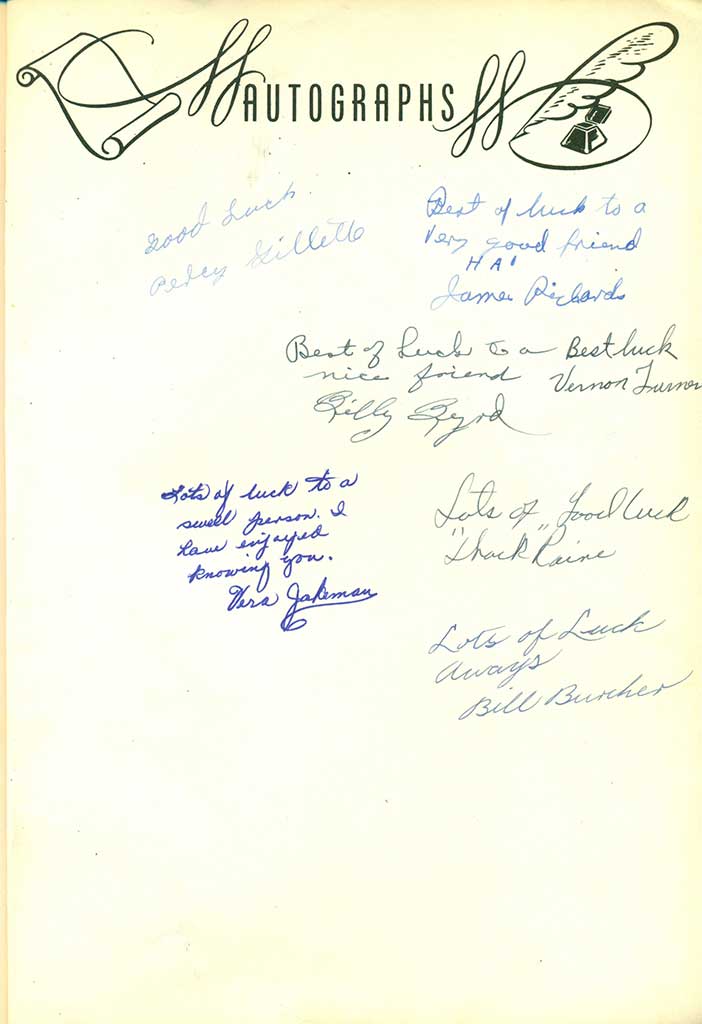 AUTOGRAPHS
Good Luck
Percy Gillette
Best of luck to a
Very good friend
HA!
James Richards
Best of Luck to a
nice friend
Billy Byrd
Best luck
Vernon Turner
Lots of luck to a
swell person. I
have enjoyed
knowing you.
Vera Jakeman
Lots of Good Luck
"Shack" Raine
Lots of Luck
Aways
Bill Burcher